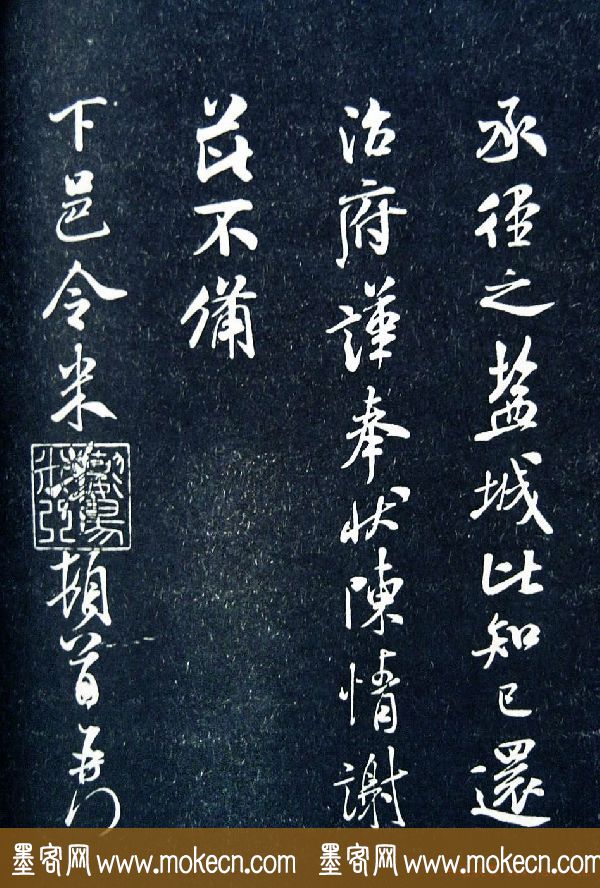 承徑之鹽城比知已還
治府謹奉状陳情謝
芘不備
下邑令米
頓首再拜
墨客网 www.mokecn.com 墨客网 www.mokecn.com